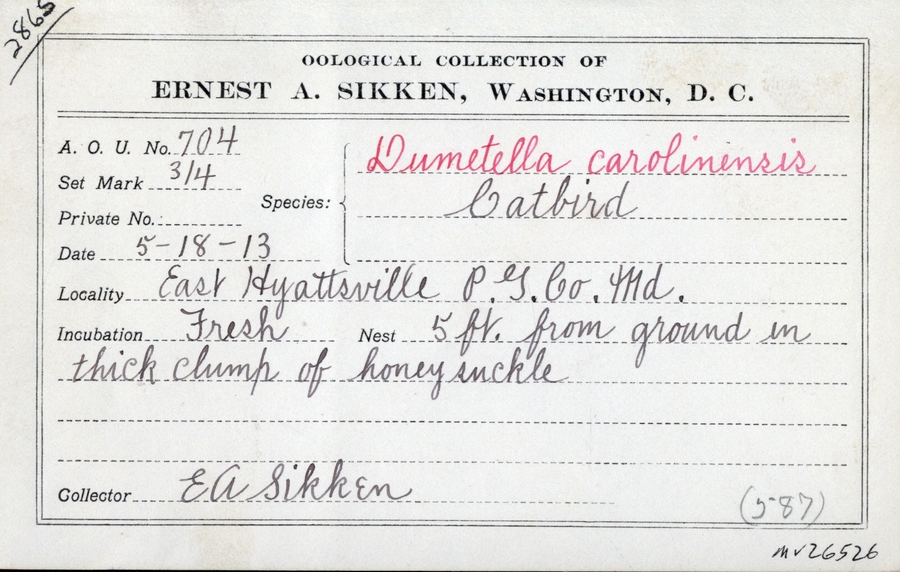 2865
OOLOGICAL COLLECTION OF
ERNEST A. SIKKEN, WASHINGTON, D. C.
A. O. U. No. 704
Set Mark 3/4
Private No.
Date 5-18-13
Species: Dumetella carolinensis
Catbird
Locality East Hyattsville P.G. Co. Md.
Incubation Fresh Nest 5 ft. from ground in
thick clump of honeysuckle
Collector EA Sikken
(587)
mv26526